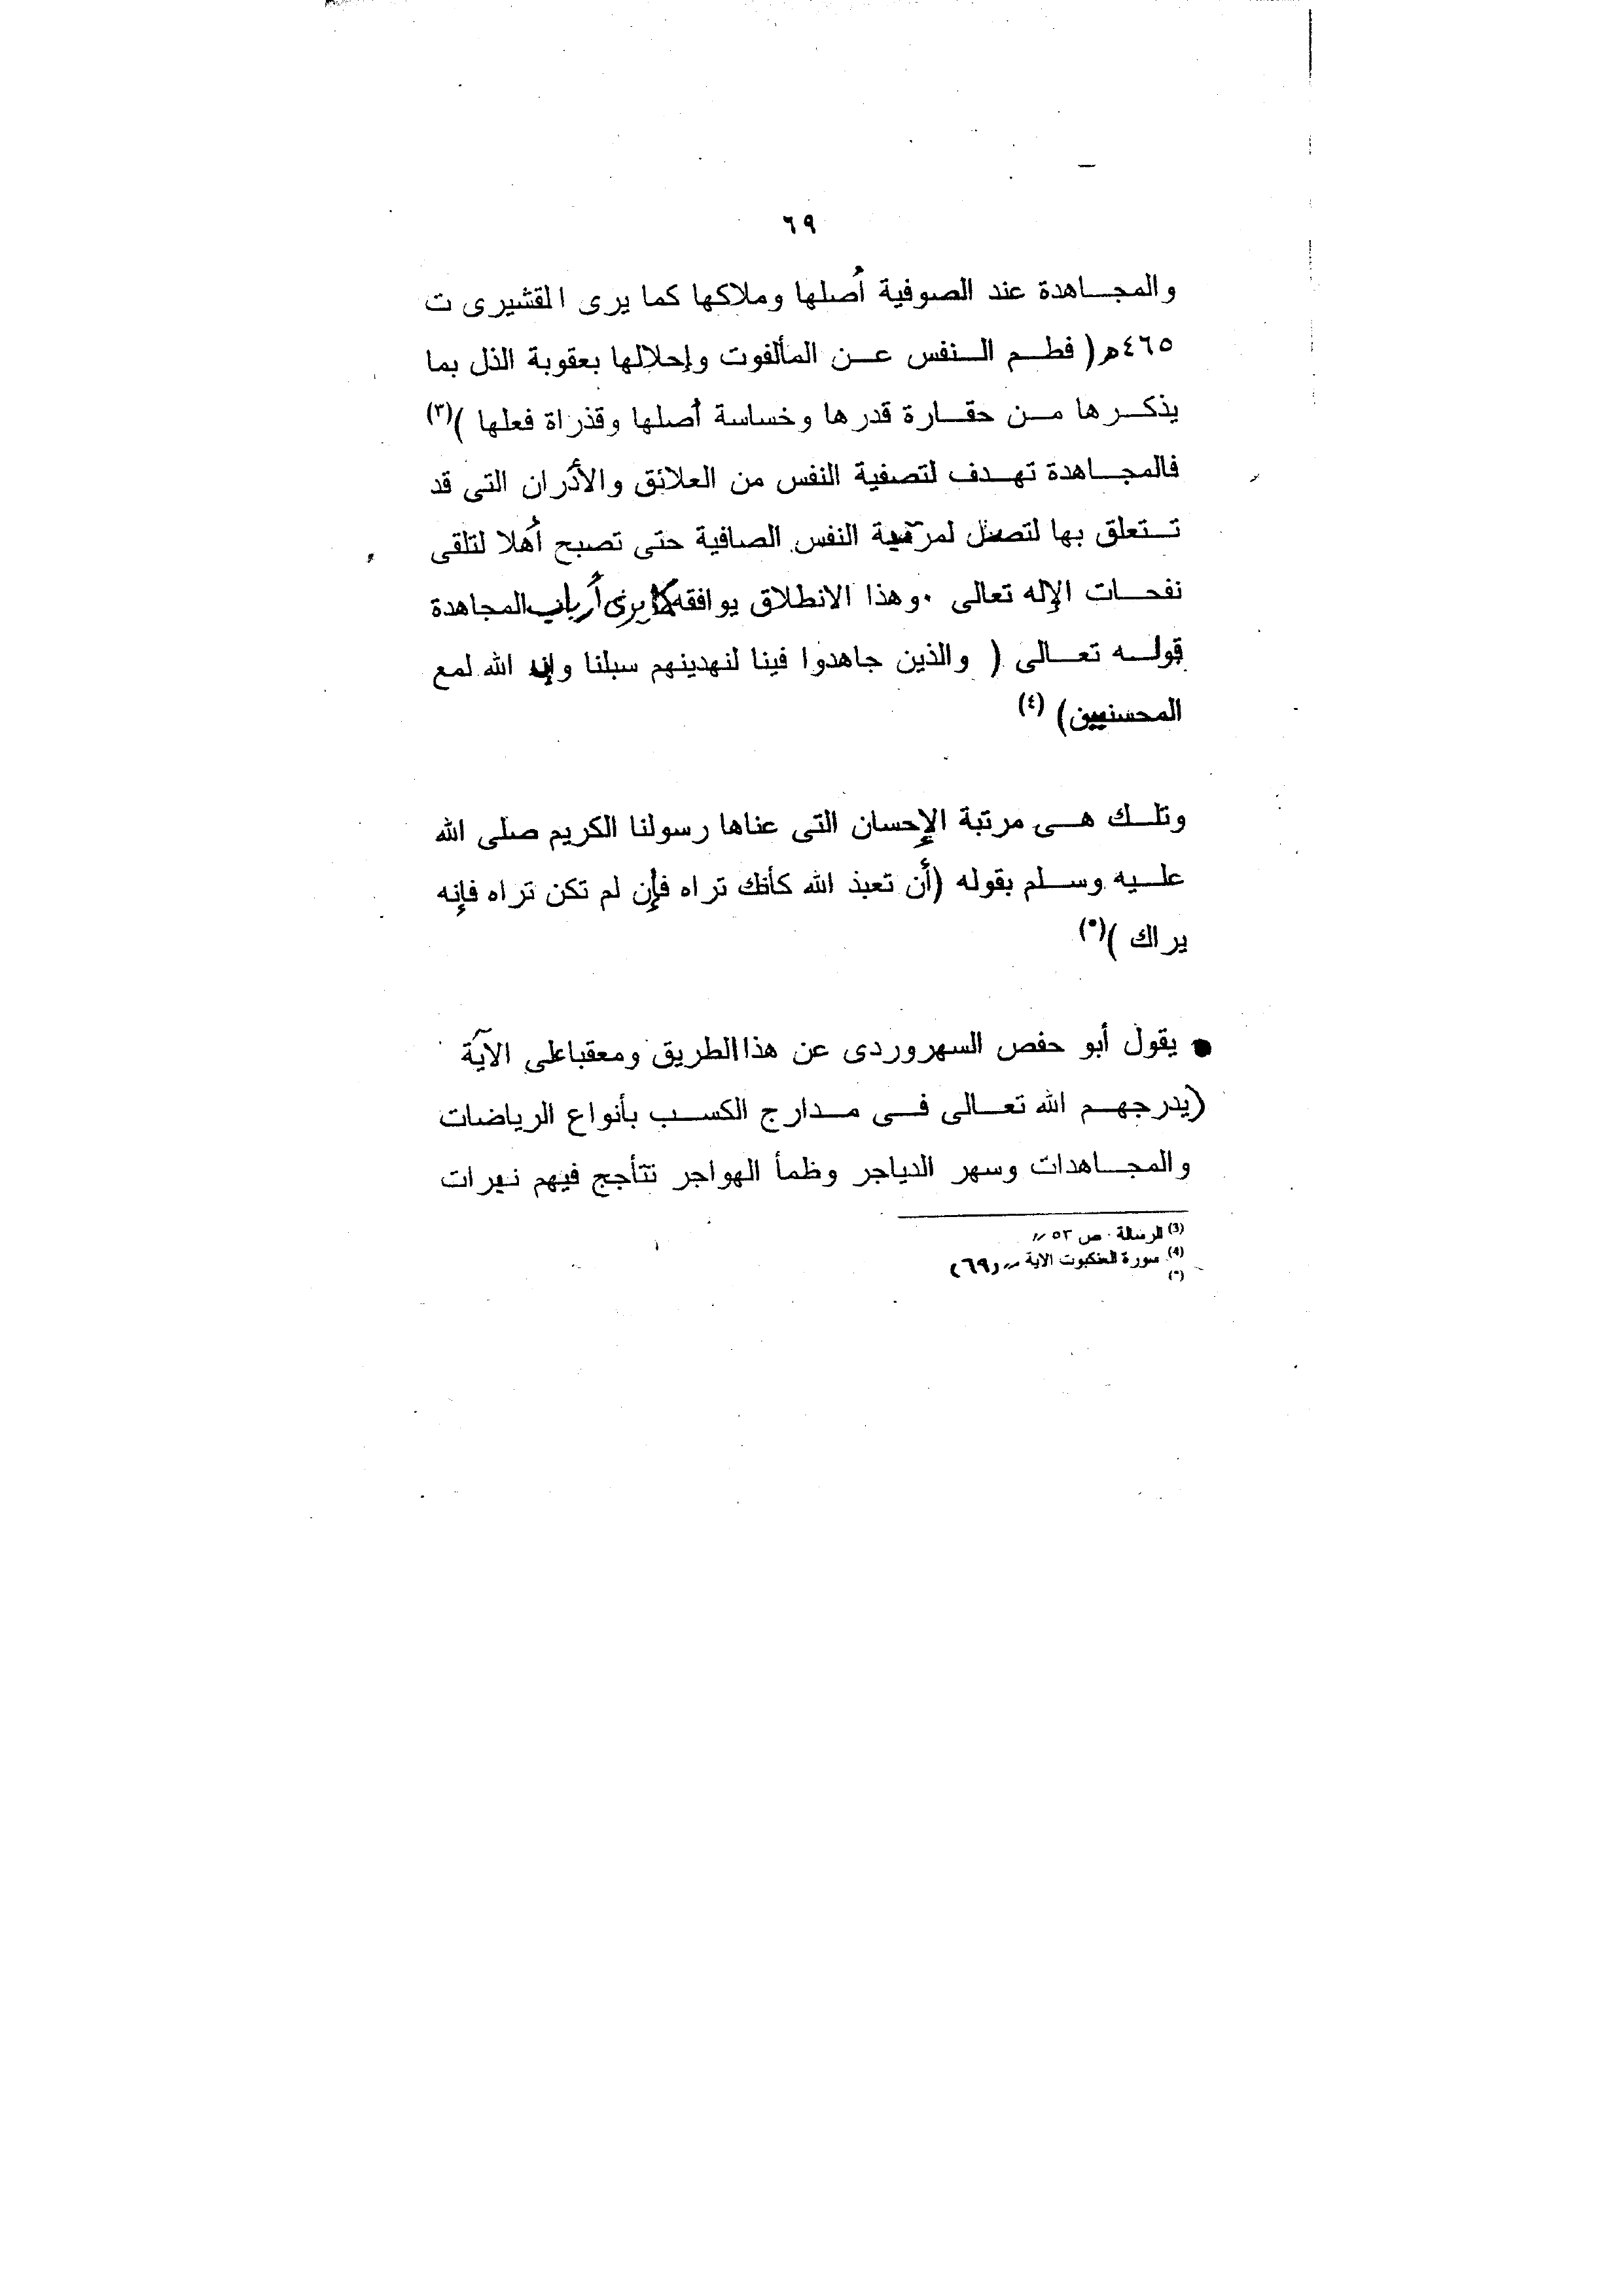 ٦٩
والمجاهدة عند الصوفية أصلها وملاكها كما يرى القشيرى ت
٤٦٥هـ( فطم النفس عن المألفوت وإحلالها بعقوبة الذل بما
يذكرها من حقارة قدرها وخساسة أصلها وقذراة فعلها )(٣)
فالمجاهدة تهدف لتصفية النفس من العلائق والأدران التى قد
تتعلق بها لتصل لمرتبة النفس الصافية حتى تصبح أهلا لتلقى
نفحات الإله تعالى ٠وهذا الانطلاق يوافقه كما يرى أرباب المجاهدة
قوله تعالى ( والذين جاهدوا فينا لنهدينهم سبلنا وإن الله لمع
المحسنيين) (٤)
وتلك هى مرتبة الإحسان التى عناها رسولنا الكريم صلى الله
عليه وسلم بقوله (أن تعبذ الله كأنك تراه فإن لم تكن تراه فإنه
يراك )(٥)
• يقول أبو حفص السهروردى عن هذاالطريق ومعقباعلى الآية
(يدرجهم الله تعالى فى مدارج الكسب بأنواع الرياضات
والمجاهدات وسهر الدياجر وظمأ الهواجر تتأجج فيهم نيرات
(3) الرسالة ٠ ص ٥٣ //
(4) سورة العنكبوت الآية // (٦٩)
(٥)